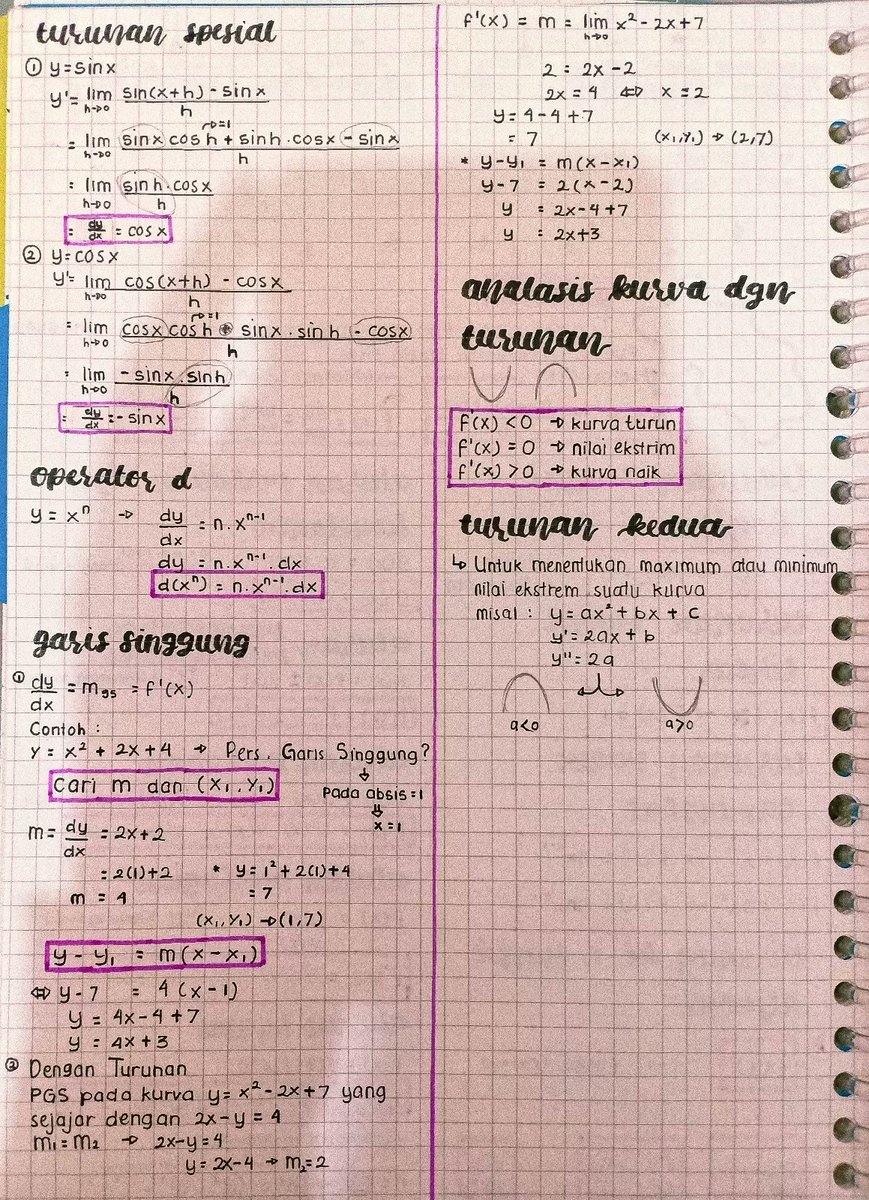 turunan spesial
① y = sin x
y' = lim h→0 sin(x+h) - sin x / h
= lim h→0 sin x cos h + sin h . cos x - sin x / h
→=1
= lim h→0 sin h . cos x / h
= dy/dx = cos x
② y = cos x
y' = lim h→0 cos(x+h) - cos x / h
→=1
= lim h→0 cos x cos h sin x . sin h - cos x / h
= lim h→0 - sin x . sin h / h
= dy/dx = - sin x
operator d
y = xⁿ → dy/dx = n . xⁿ⁻¹
dy = n . xⁿ⁻¹ . dx
d(xⁿ) = n . xⁿ⁻¹ . dx
garis singgung
① dy/dx = m gs = f'(x)
Contoh :
y = x² + 2x + 4 → Pers. Garis Singgung?
↓
Pada absis = 1
⇓
x = 1
Cari m dan (x₁, y₁)
m = dy/dx = 2x + 2
= 2(1) + 2 * y = 1² + 2(1) + 4
m = 4 = 7
(x₁, y₁) → (1, 7)
y - y₁ = m(x - x₁)
⇔ y - 7 = 4(x - 1)
y = 4x - 4 + 7
y = 4x + 3
② Dengan Turunan
PGS pada kurva y = x² - 2x + 7 yang
sejajar dengan 2x - y = 4
m₁ = m₂ → 2x - y = 4
y = 2x - 4 → m₂ = 2
f'(x) = m = lim h→0 x² - 2x + 7
2 = 2x - 2
2x = 4 ⇔ x = 2
y = 4 - 4 + 7
= 7 (x₁, y₁) → (2, 7)
* y - y₁ = m(x - x₁)
y - 7 = 2(x - 2)
y = 2x - 4 + 7
y = 2x + 3
analasis kurva dgn
turunan
f'(x) < 0 → kurva turun
f'(x) = 0 → nilai ekstrim
f'(x) > 0 → kurva naik
turunan kedua
↳ Untuk menentukan maximum atau minimum
nilai ekstrem suatu kurva
misal : y = ax² + bx + c
y' = 2ax + b
y'' = 2a
a<0 a>0